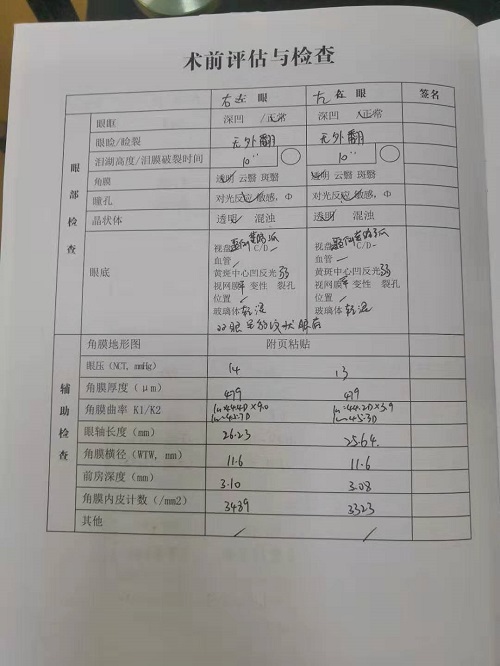 术前评估与检查
右 眼 左 眼 签名
眼眶 深凹 / 正常 深凹 / 正常
眼睑/睑裂 无外翻 无外翻
泪湖高度/泪膜破裂时间 10'' 10''
眼部检查
角膜 透明 云翳 斑翳 透明 云翳 斑翳
瞳孔 对光反应 敏感，Φ 对光反应 敏感，Φ
晶状体 透明 混浊 透明 混浊
眼底
视盘 C/D- 视盘 C/D-
血管 血管
黄斑中心凹反光弱 黄斑中心凹反光弱
视网膜平 变性 裂孔 视网膜平 变性 裂孔
位置 位置
玻璃体轻混 玻璃体轻混
辅助检查
角膜地形图 附页粘贴
眼压（NCT, mmHg） 14 13
角膜厚度（μm） 479 479
角膜曲率 K1/K2 44.4D×9.0 44.2D×3.9
45.7D 45.3D
眼轴长度（mm） 26.23 25.64
角膜横径（WTW, mm） 11.6 11.6
前房深度（mm） 3.10 3.08
角膜内皮计数（/mm2） 3439 3323
其他 / /